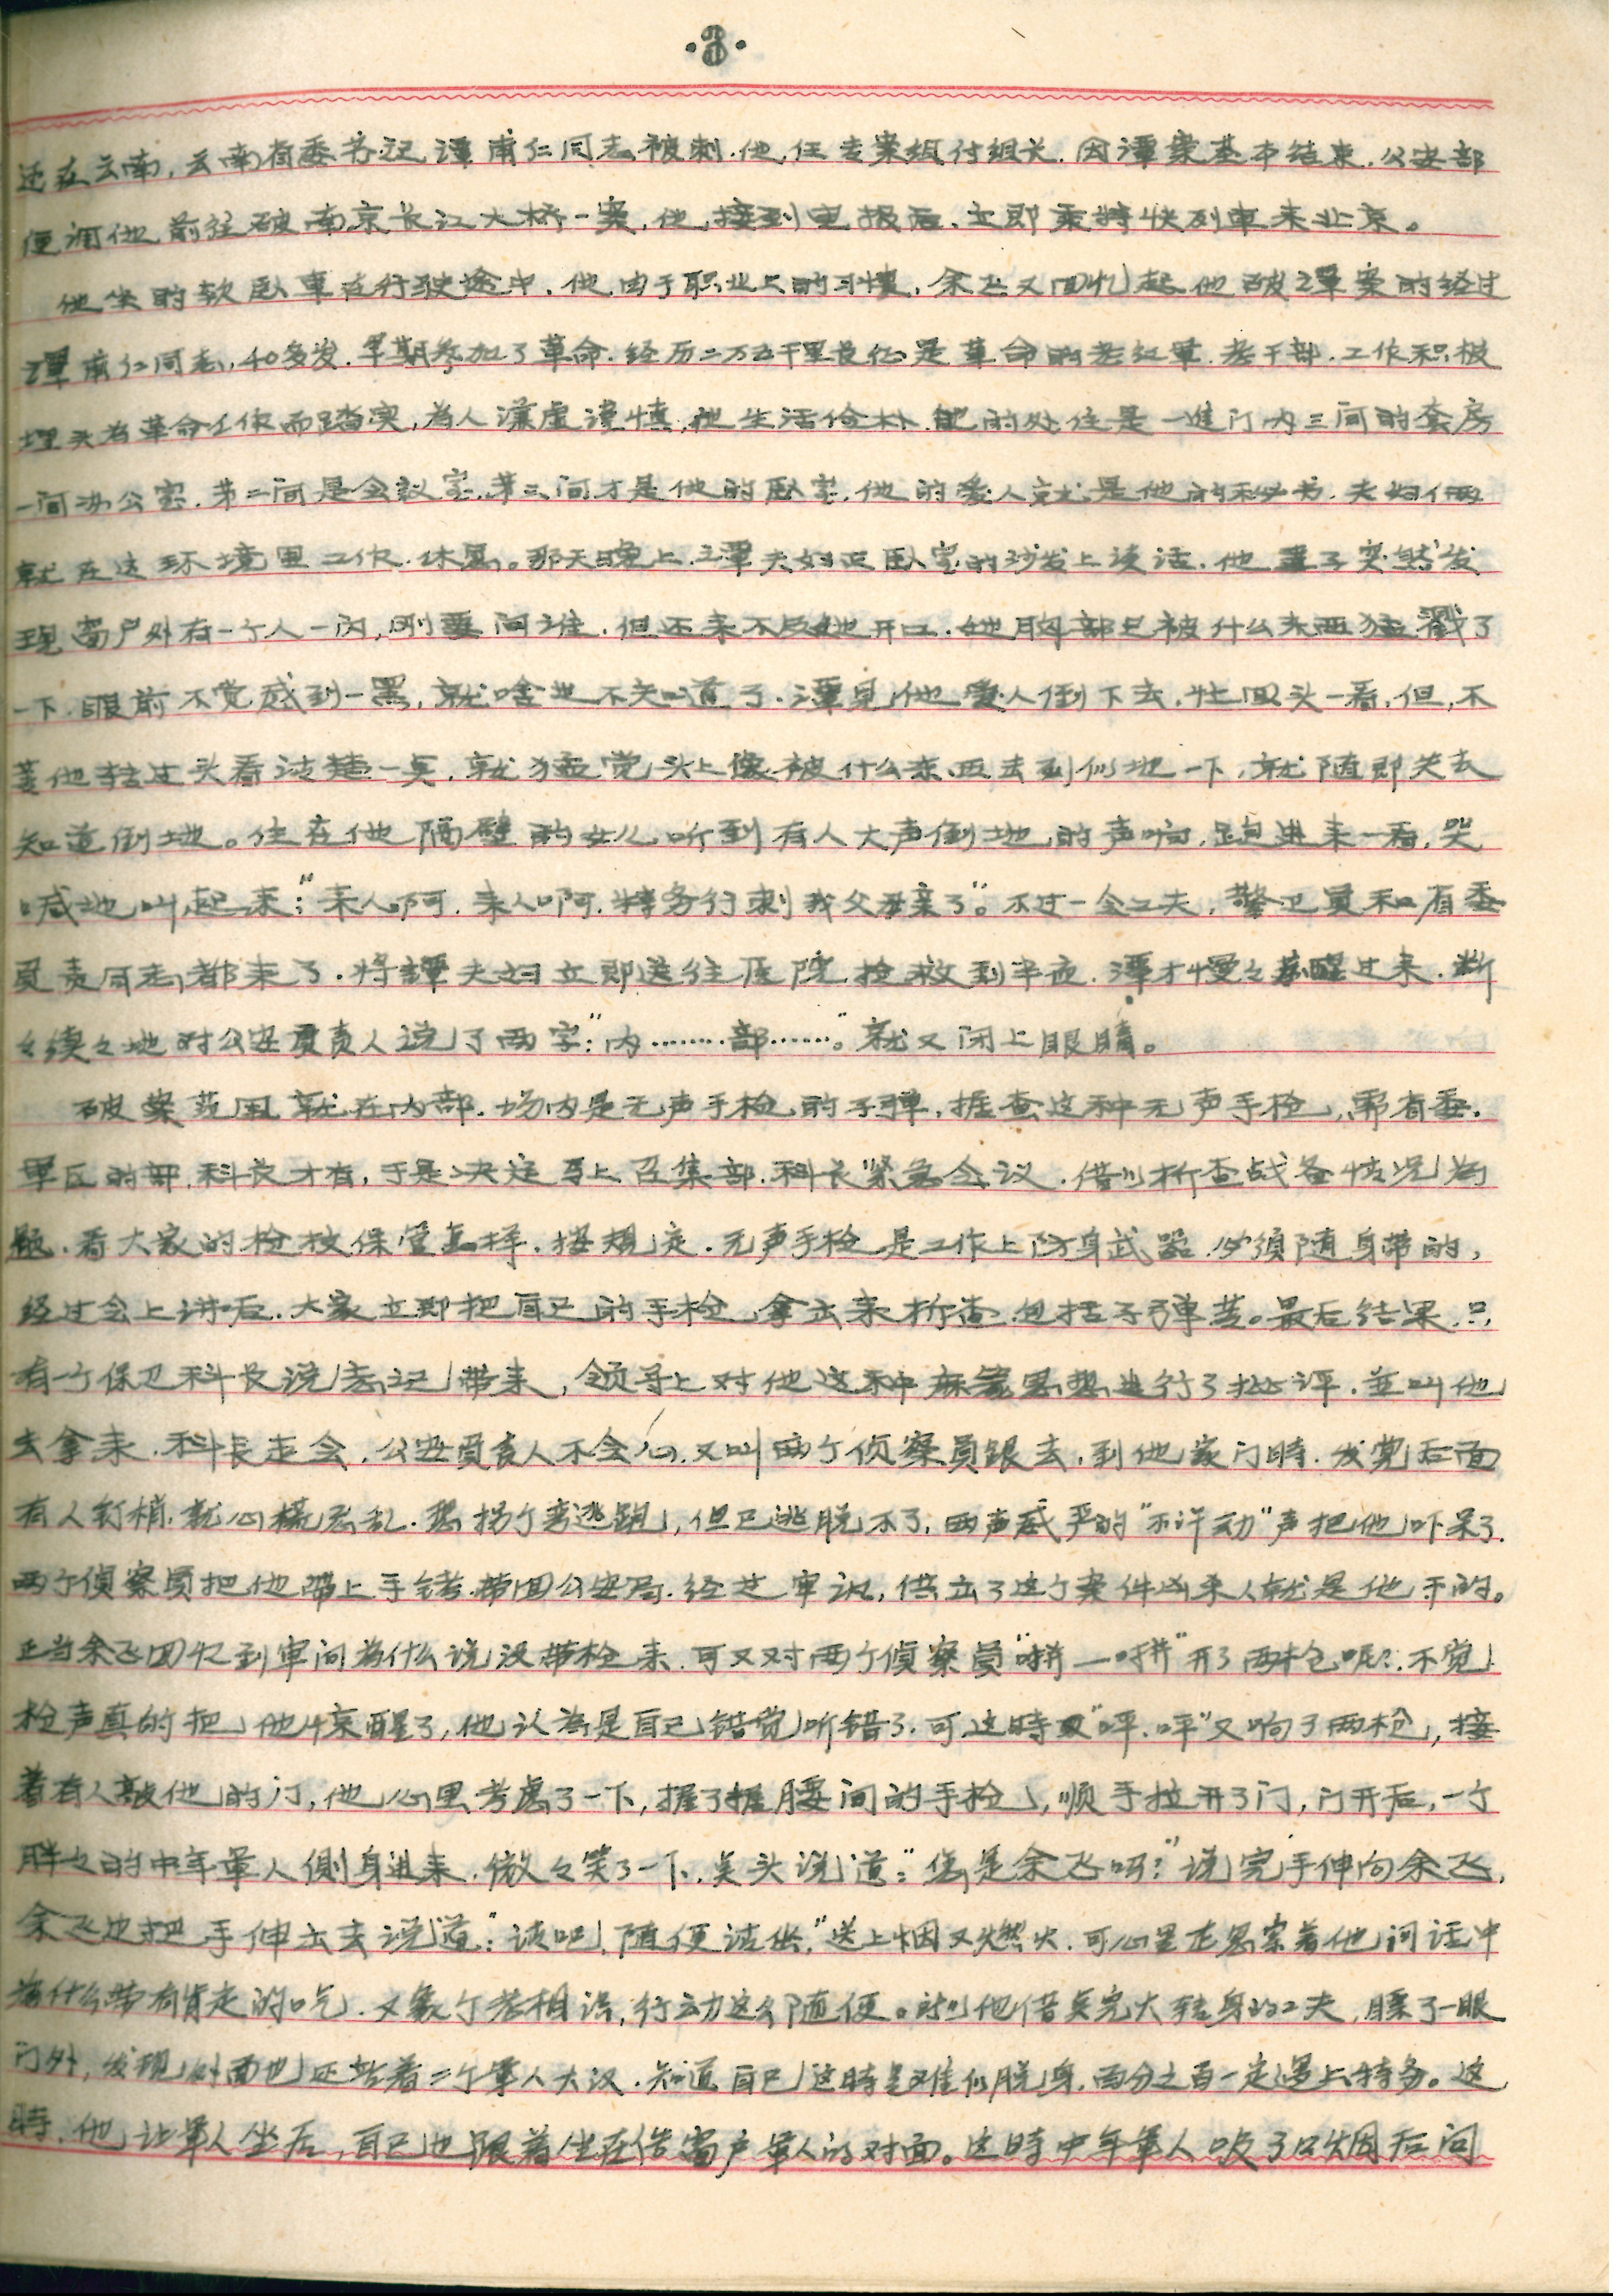 ·3·
还在云南,云南省委书记谭甫仁同志被刺.他任专案组付组长.因谭案基本结束.公安部
便调他前往破南京长江大桥一案,他接到电报后、立即乘特快列車来北京。
他坐的软卧車在行驶途中.他由于职业上的习惯,余飞又回忆起他破谭案的经过
谭甫仁同志,40多岁.早期参加了革命.经历二万五千里长征是革命的老红軍.老干部.工作积极
埋头为革命工作而踏实,為人谦虚谨慎,他生活俭朴.他的处住是一進门内三间的套房
一间办公室.第二间是会议室,第三间才是他的卧室.他的爱人就是他的秘书.夫妇俩
就在这环境里工作.休息。那天晚上.谭夫妇正卧室的沙发上谈话.他妻子突然发
現窗户外有一个人一闪,刚要问谁.但还来不及她开口.她胸部已被什么东西猛戳了
一下.眼前不觉感到一黑,就啥也不知道了.谭見他爱人倒下去,忙回头一看,但,不
等他转过头看清楚一点,就猛觉头上像被什么东西击到似地一下,就随即失去
知道倒地。住在他隔壁的女儿听到有人大声倒地的声响.跑进来一看,哭
喊地叫起来:"来人啊.来人啊.特务行刺我父母亲了"。不过一会工夫.警卫員和省委
負责同志都来了.将譚夫妇立即送往医院抢救到半夜.谭才慢々苏醒过来.断
々续々地对公安負责人说了两字:"内……部……"。就又闭上眼睛。
破案范围就在内部.场内是无声手枪的子弹,据查这种无声手枪,需省委.
軍区的部.科长才有,于是决定马上召集部.科长紧急会议.借以折查战备情况为
题.看大家的枪枝保管怎样.按规定.无声手枪是工作上防身武器.必须随身带的,
经过会上讲后.大家立即把自己的手枪拿出来折查.包括子弹等。最后结果.只
有一个保卫科长说忘记带来,领导上对他这种麻痹思想进行了批评.並叫他
去拿来.科长走会.公安負责人不会心.又叫两个侦察員跟去,到他家门時.发觉后面
有人钉梢.就心慌忽乱.想拐个弯逃跑,但已逃脱不了,两声威严的"不许动"声把他吓呆了.
两个侦察員把他带上手铐.带回公安局.经过审讯,供出了这个案件凶杀人就是他干的。
正当余飞回忆到审问为什么说没带枪来.可又对两个侦察員"嘭—嘭"开了两枪呢?.不觉
枪声真的把他惊醒了,他认為是自己错觉听错了.可这時又"呯.呯"又响了两枪,接
着有人敲他的门,他心里考慮了一下,握了握腰间的手枪,顺手拉开了门,门开后,一个
胖々的中年軍人側身进来.微々笑了一下.点头说道:"您是余飞吗?"说完手伸向余飞,
余飞也把手伸出去说道:"请吧,随便请坐,"送上烟又燃火.可心里在思索着他问话中
为什么带有肯定的口气.又象个老相识,行动这么随便。就他借点完火转身的工夫,瞟了一眼
门外,发现对面也还站着二个軍人大汉.知道自己这時是难似脱身.百分之百一定遇上特务。这
時.他让軍人坐后,自己也跟着坐在告窗户軍人的对面。这時中年軍人吸了口烟后问